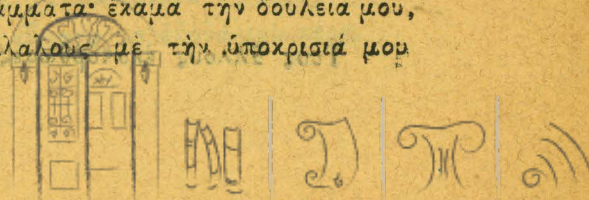 άμματα· ἔκαμα τὴν δουλειά μου,
λάλους μὲ τὴν ὑποκρισιά μου